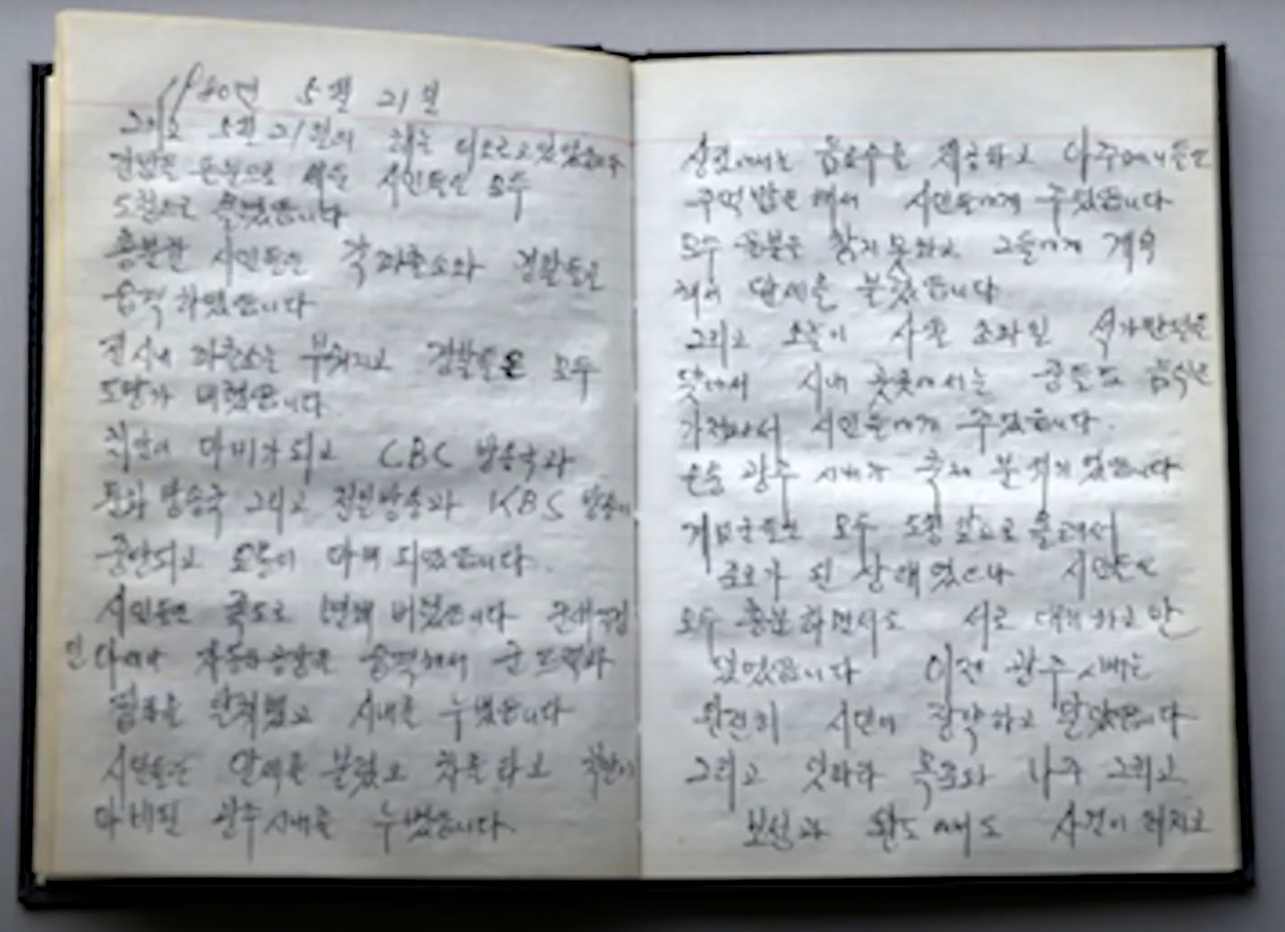 1980년 5월 21일
그리고 5월 21일의 해는 떠오르고 있었습니다
밤을 시민들은 모두
도청으로 습니다
흥분한 시민들은 각 파출소와 경찰들을
습격 하였습니다
전시내 파출소는 부숴지고 경찰들은 모두
도망가 버렸습니다
치안이 마비가 되고 CBC 방송국과
문화 방송국 그리고 전일방송과 KBS 방송이
중단되고 마비 되었습니다.
시민들은 폭도로 변해 버렸습니다
자동차공장을 습격해서 군 트럭과
찝차를 탈취했고 시내를 누볐습니다
시민들은 만세를 불렀고 차를 타고 치안이
마비된 광주시내를 누볐습니다.
상점에서는 음료수를 제공하고 나주에서는
주먹밥을 해서 시민들에게 주었습니다
모두 울분을 참지 못하고 그들에게 계속
해서 만세를 불렀습니다
그리고 오늘이 사월 초파일 석가탄신을
맞아서 시내 곳곳에서는 음식을
가져와서 시민들에게 주었습니다.
온통 광주 시내가 축제 분위기였습니다
계엄군들은 모두 도청 앞으로 몰려서
된 상태였으나 시민들은
모두 흥분하면서도 서로 대치하고만
있었습니다 이젠 광주 시내는
완전히 시민이 장악하고 말았습니다
그리고 잇따라 목포와 나주 그리고
보성과 완도에서도 사건이 터지고